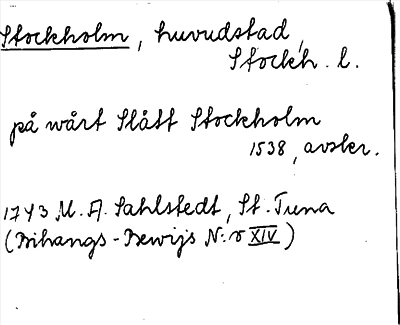 Stockholm, huvudstad,
Stockh. l.
på wårt Slått Stockholm
1538, avskr.
1743 M. A. Sahlstedt, St. Tuna
(Bihangs-Bewijs N:r XIV)